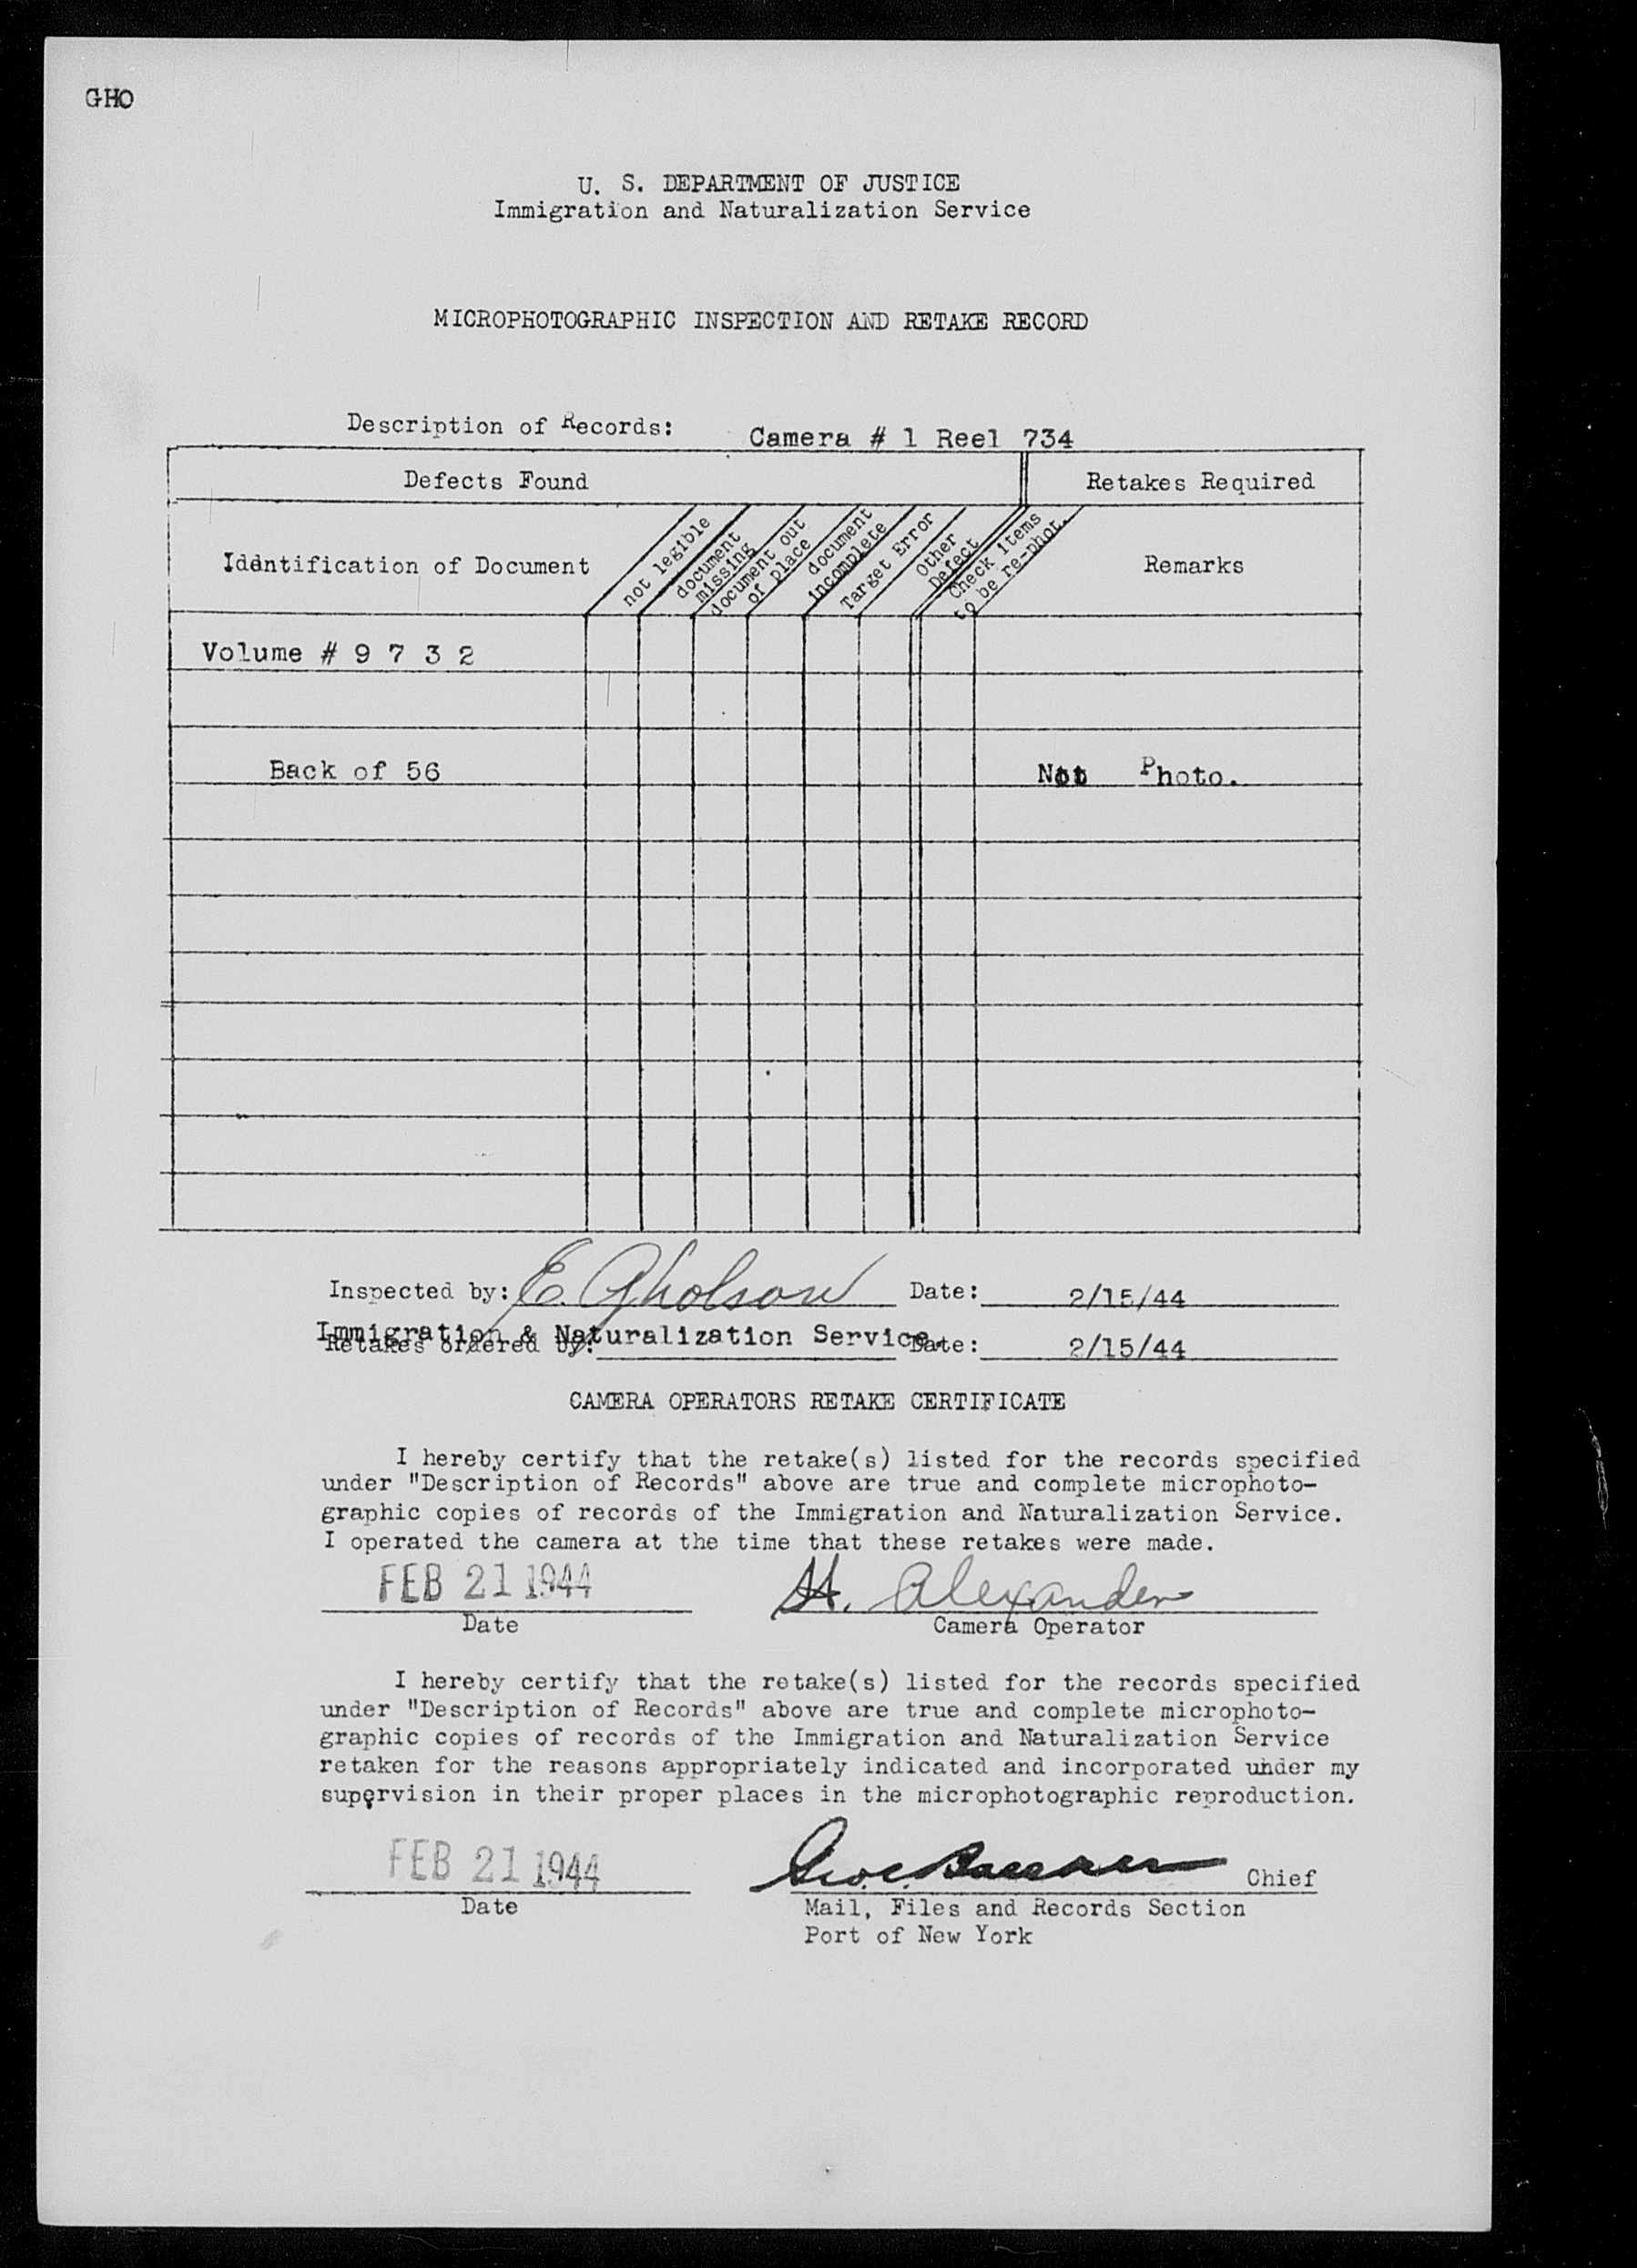 GHO
U. S. DEPARTMENT OF JUSTICE
Immigration and Naturalization Service
MICROPHOTOGRAPHIC INSPECTION AND RETAKE RECORD
Description of Records: Camera # 1 Reel 734
Defects Found
Retakes Required
Identification of Document
not legible
document missing
document out of place
document incomplete
Target Error
Other Defect
Check items to be re-phot.
Remarks
Volume # 9 7 3 2
Back of 56 Not Photo.
Inspected by: E. Gholson Date: 2/15/44
Immigration & Naturalization Service.
Retakes ordered by: Date: 2/15/44
CAMERA OPERATORS RETAKE CERTIFICATE
I hereby certify that the retake(s) listed for the records specified
under "Description of Records" above are true and complete microphoto-
graphic copies of records of the Immigration and Naturalization Service.
I operated the camera at the time that these retakes were made.
FEB 21 1944 H. Alexander
Date Camera Operator
I hereby certify that the retake(s) listed for the records specified
under "Description of Records" above are true and complete microphoto-
graphic copies of records of the Immigration and Naturalization Service
retaken for the reasons appropriately indicated and incorporated under my
supervision in their proper places in the microphotographic reproduction.
FEB 21 1944 Chief
Date Mail, Files and Records Section
Port of New York